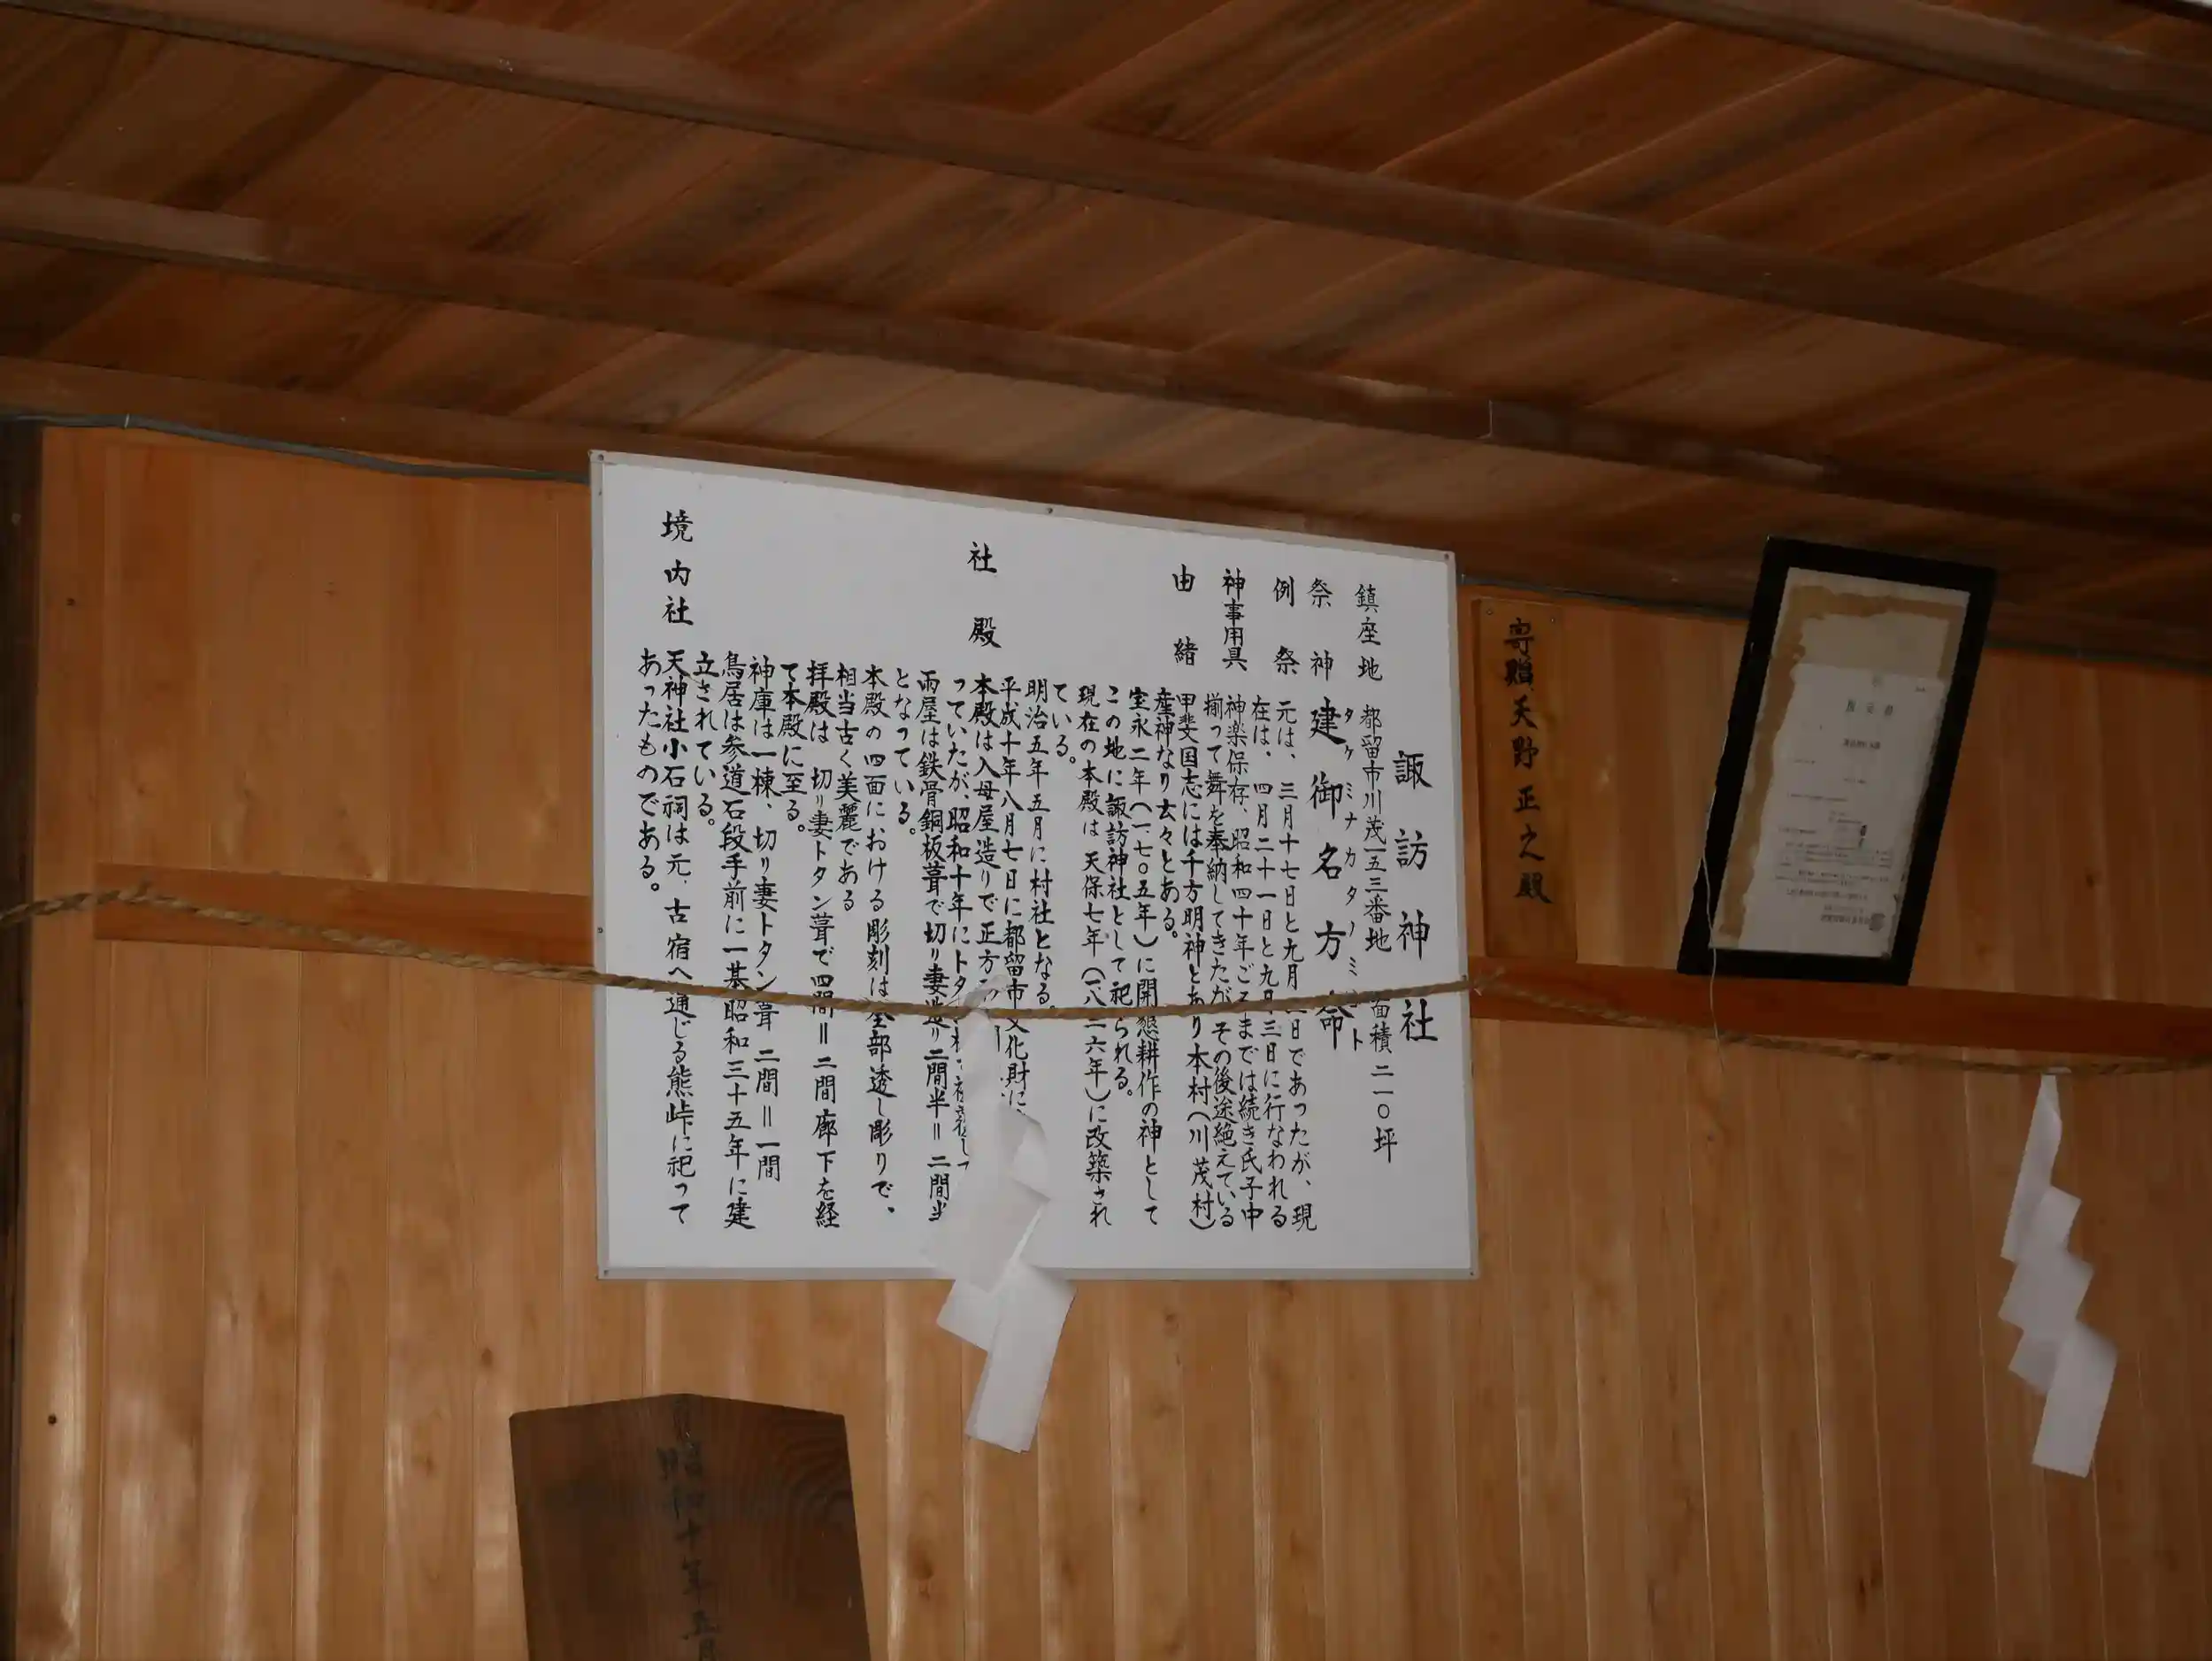 諏訪神社
鎮座地 都留市川茂一五三番地 面積 二一〇坪
タケミナカタノミコト
祭神 建御名方命
例祭 元は、三月十七日と九月 日であったが、現
在は、四月二十一日と九月 三日に行なわれる
神事用具 神楽保存、昭和四十年ごろまでは続き氏子中
揃って舞を奉納してきたが、その後途絶えている
由緒 甲斐国志には千方明神とあり本村(川茂村)
産神なり玄々とある。
宝永二年(一、七〇五年)に開懇耕作の神として
この地に諏訪神社として祀られる。
現在の本殿は天保七年(一八二六年)に改築され
ている。
明治五年五月に村社となる。
平成十年八月七日に都留市文化財に
社殿 本殿は入母屋造りで正方
っていたが、昭和十年にトタ
両屋は鉄骨銅板葺で切り妻造り二間半=二間当
となっている。
本殿の四面における彫刻は全部透し彫りで、
相当古く美麗である
拝殿は 切り妻トタン葺で四間=二間廊下を経
て本殿に至る。
神庫は一棟、切り妻トタン葺 二間=一間
鳥居は参道石段手前に一基昭和三十五年に建
立されている。
境内社 天神社小石祠は元、古宿へ通じる熊峠に祀って
あったものである。
寄贈天野正之殿
昭和十年五月